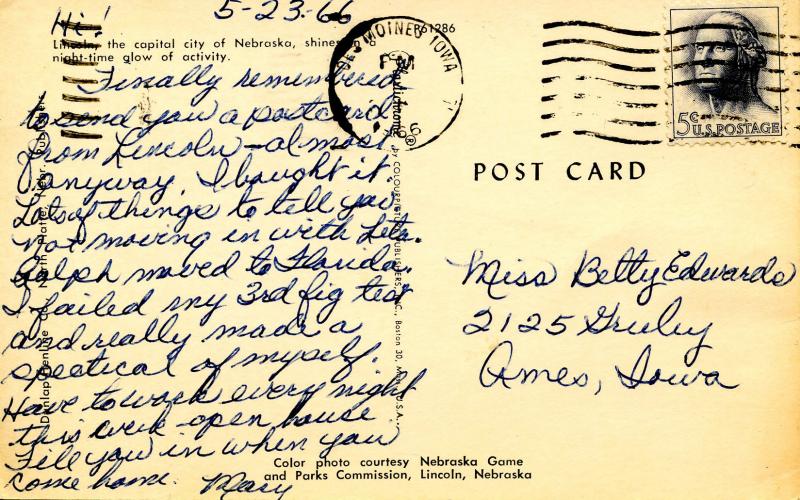 Hi! 5-23-66
Lincoln, the capital city of Nebraska, shines
night-time glow of activity.
Finally remembered
to send you a postcard
from Lincoln - almost
anyway, I bought it.
Lots of things to tell you
not moving in with
Ralph moved to Florida.
I failed my 3rd fig test
and really made a
spectical of myself.
Have to work every night
this week - open house
Fill you in when you
come home. Mary
DES MOINES IOWA
PM
5¢ U.S. POSTAGE
POST CARD
Miss Betty Edwards
2125 Greeley
Ames, Iowa
by COLOURPICTURE PUBLISHERS, INC., Boston 30, Mass., U.S.A.
North Platte, Nebr.
Color photo courtesy Nebraska Game
and Parks Commission, Lincoln, Nebraska